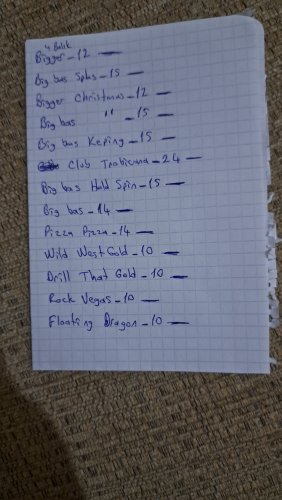 4 Balık
Bigger - 12 —
Big bas Splas - 15 —
Bigger Christmas - 12 —
Big bas " - 15 —
Big bas Keping - 15 —
Club Tropicana - 24 —
Big bas Hold Spin - 15 —
Big bas - 14 —
Pizza Pizza - 14 —
Wild West Gold - 10 —
Drill That Gold - 10 —
Rock Vegas - 10 —
Floating Dragon - 10 —